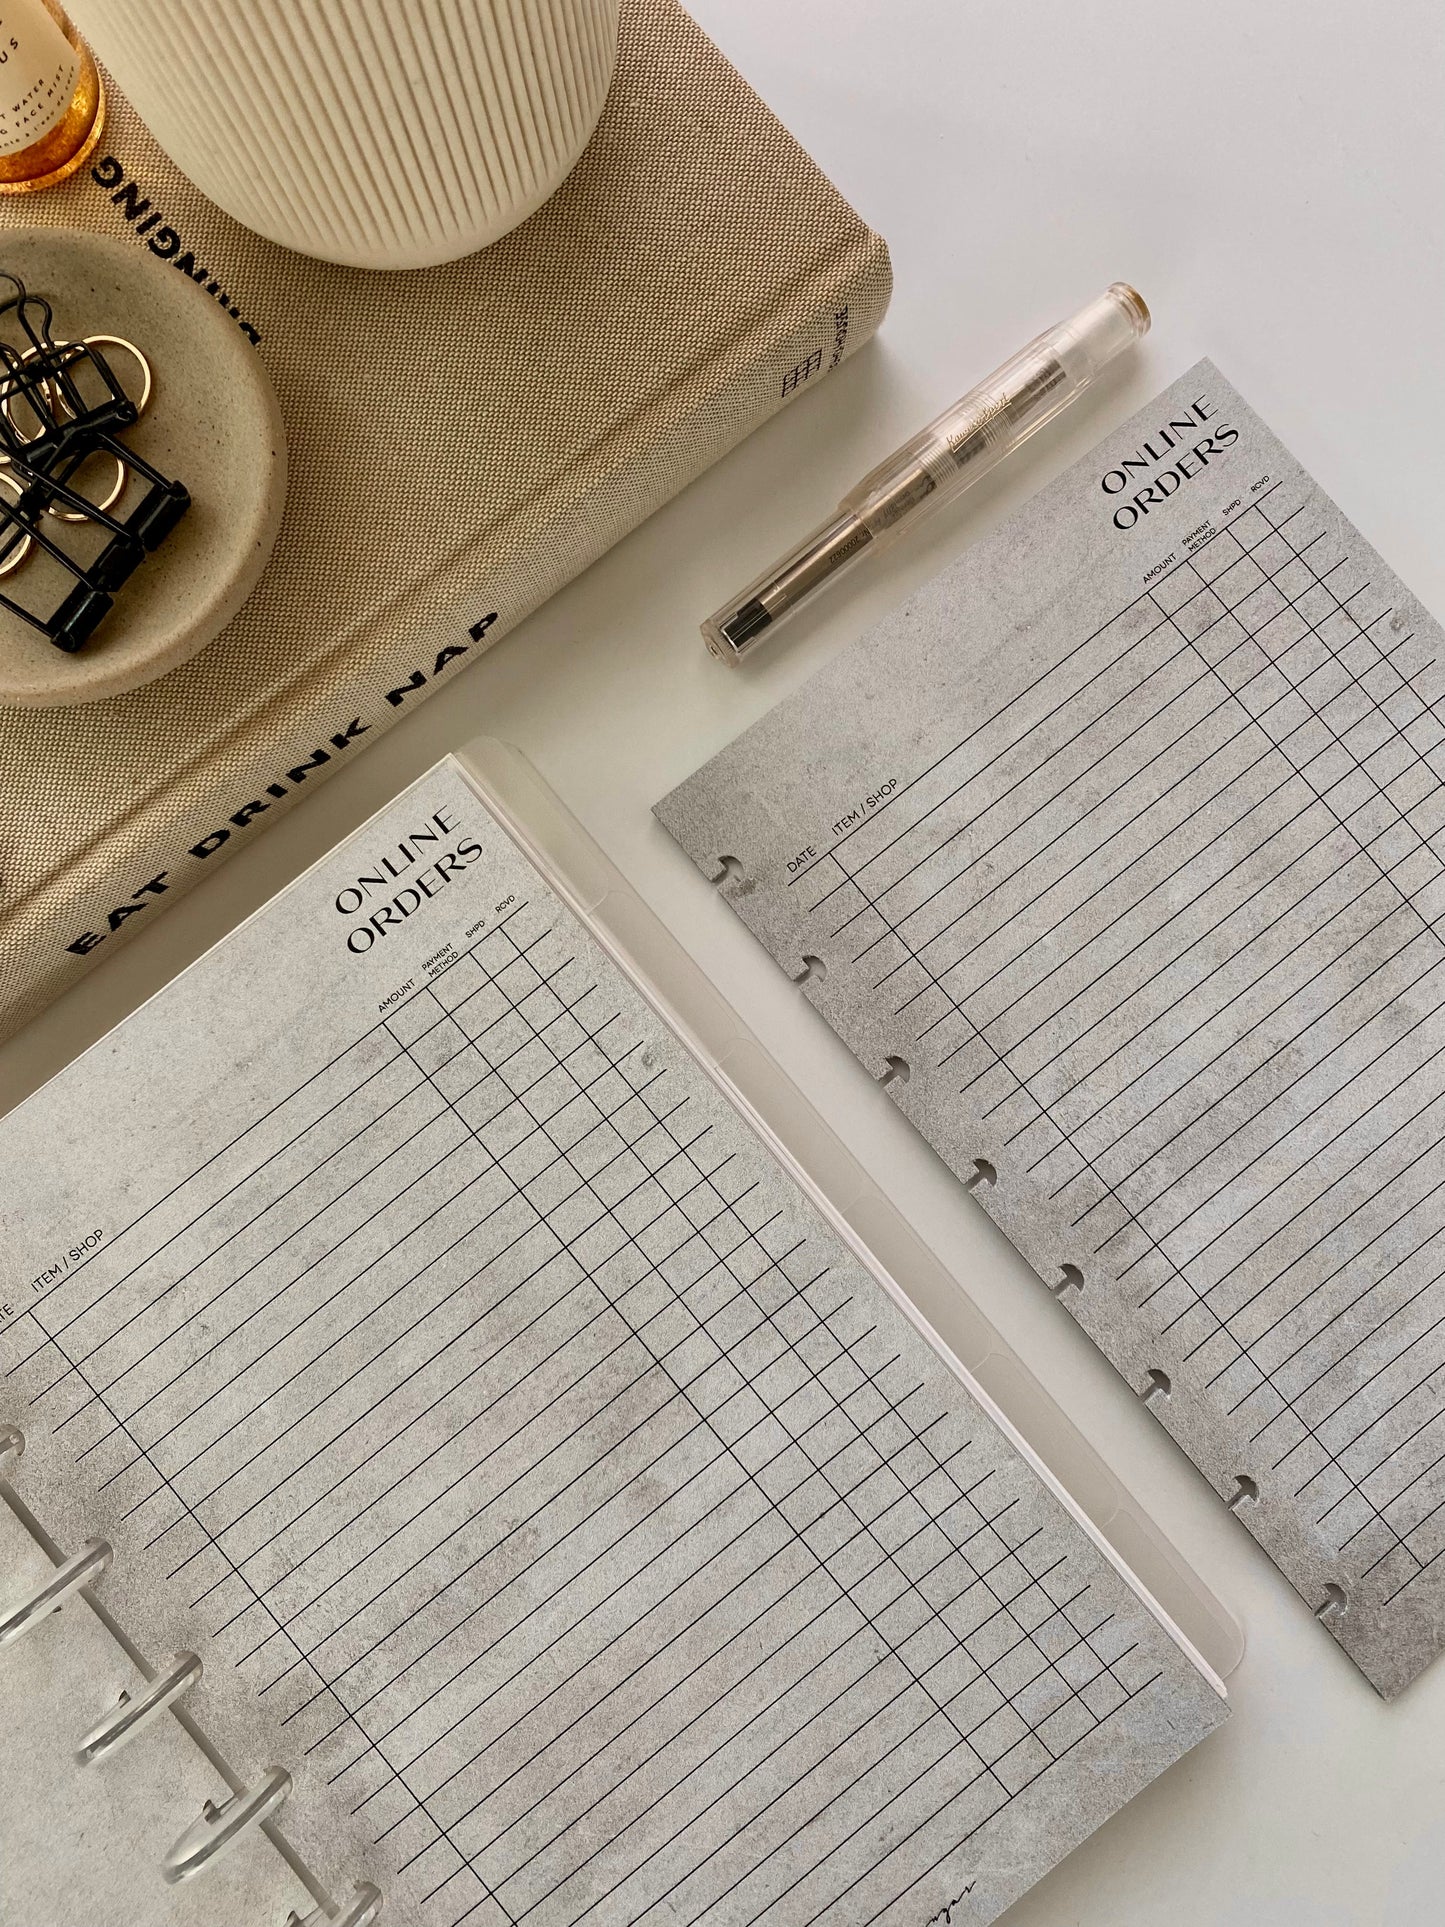 US
T WATER
G FACE MIST
BRINGING
EAT DRINK NAP
Kaweco Sport
ONLINE
ORDERS
DATE
ITEM / SHOP
AMOUNT
PAYMENT
METHOD
SHPD
RCVD
ONLINE
ORDERS
TE
ITEM / SHOP
AMOUNT
PAYMENT
METHOD
SHPD
RCVD